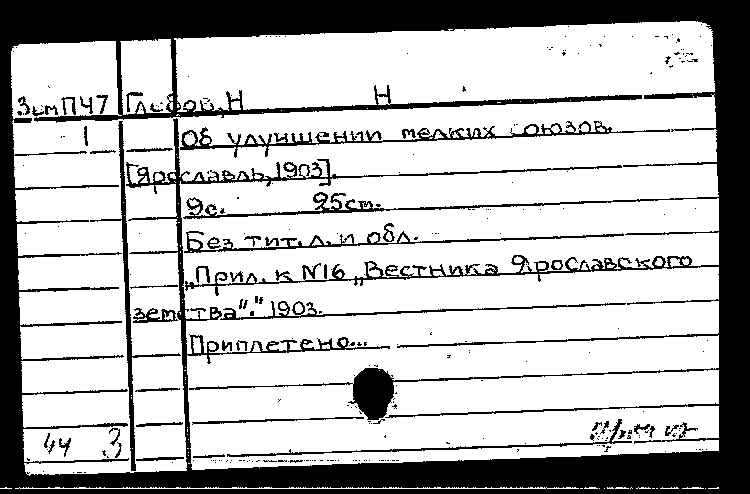 ЗемПЧ7 Глебов, Н Н
1 Об улучшении мелких союзов.
[Ярославль, 1903].
9с. 25см.
Без тит. л. и обл.
„Прил. к N16 „Вестника Ярославского
земства"." 1903.
Приплетено...
44 3